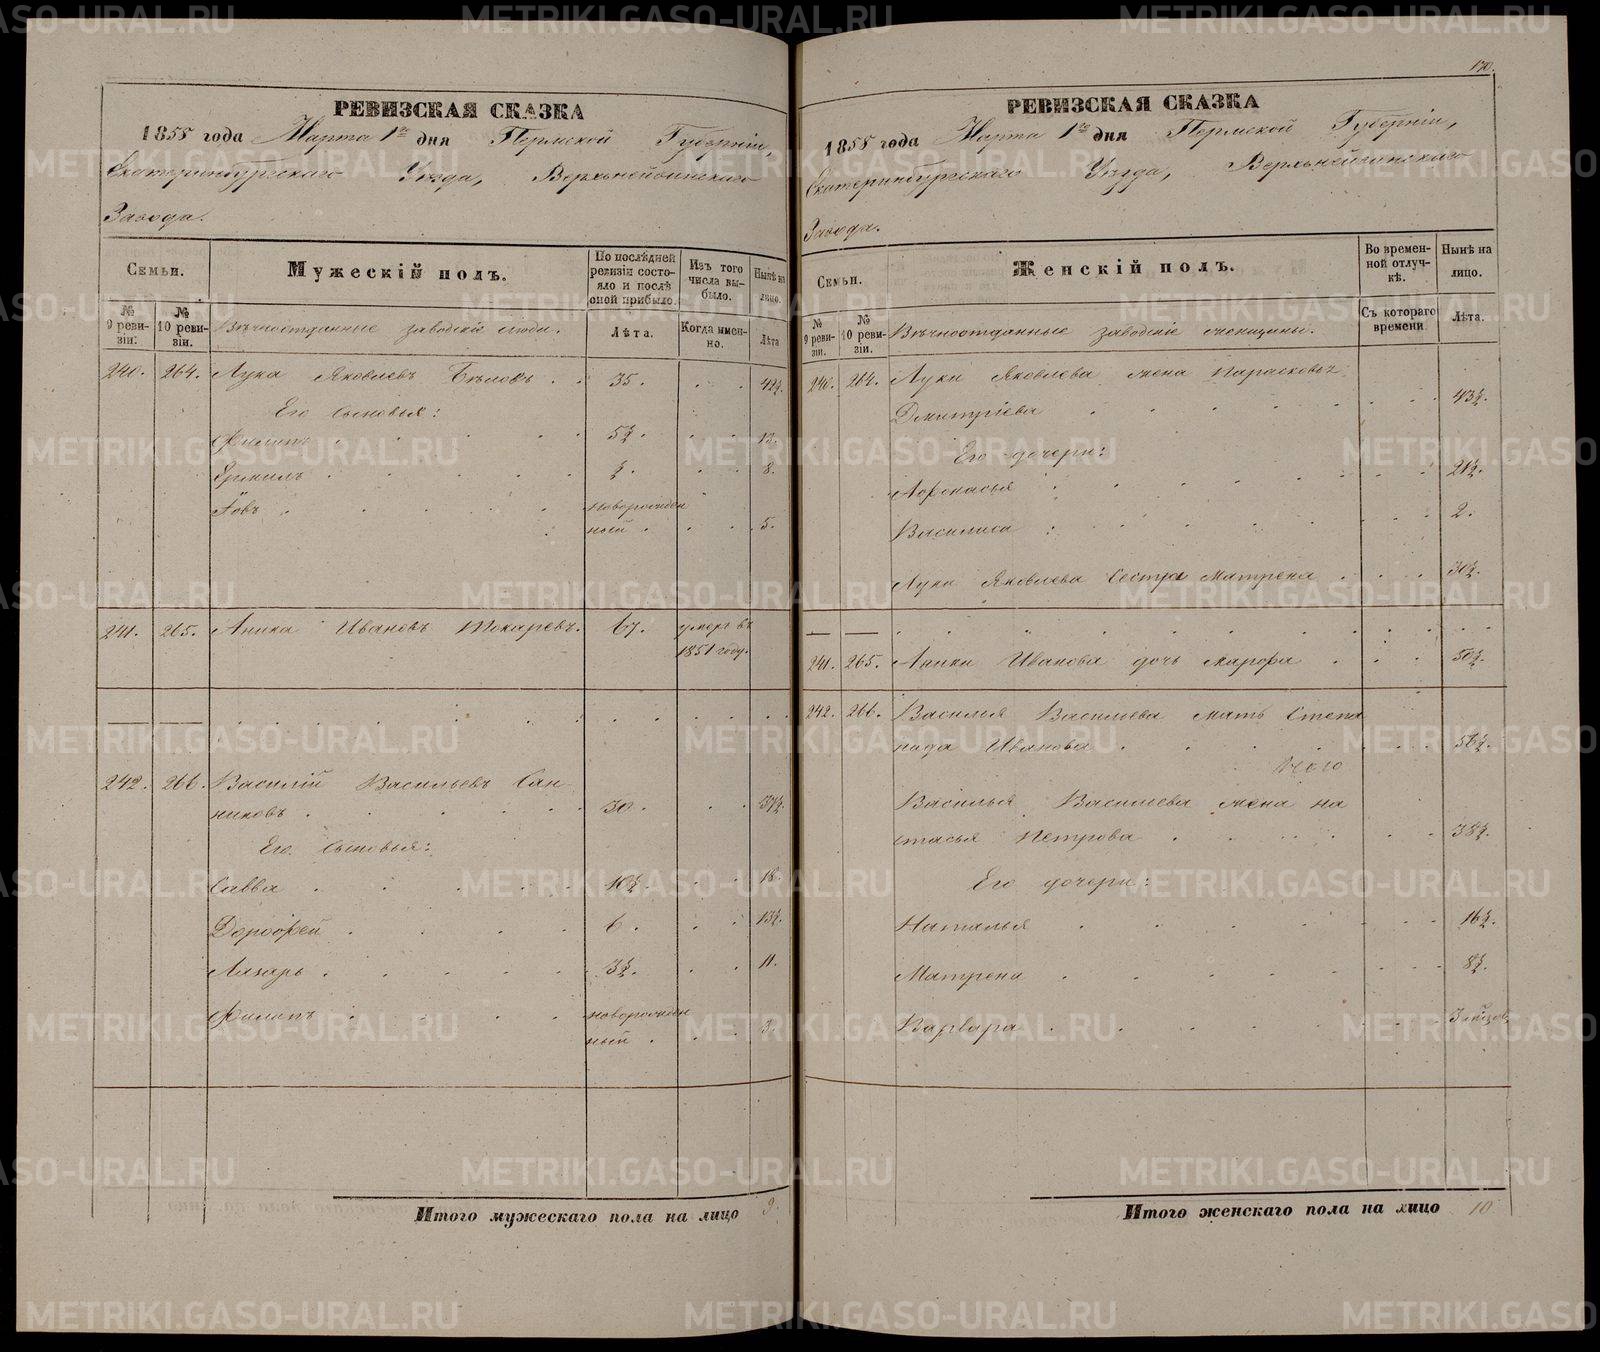 170.
РЕВИЗСКАЯ СКАЗКА
1858 года Марта 1го дня Пермской Губерніи,
Екатеринбургскаго Уѣзда, Верхнейвинскаго
Завода.
Семьи.
Мужескій полъ.
По послѣдней ревизіи состояло и послѣ оной прибыло.
Изъ того числа выбыло.
Нынѣ на лицо.
№ 9 ревизіи.
№ 10 ревизіи.
Вѣчноотданные заводскіе люди.
Лѣта.
Когда именно.
Лѣта
240. 264. Лука Яковлевъ Бѣловъ 35. 42½.
Его сыновья:
Филипъ 5½. 13.
Ермилъ ½. 8.
Іовъ новорожден
ный 5.
241. 265. Аника Ивановъ Токаревъ. 67. умеръ въ
1851 году.
242. 266. Василій Васильевъ Сан
никовъ 30. 37½.
Его сыновья:
Савва 10½. 18.
Дорофей 6. 13½.
Лазарь 3½. 11.
Филипъ новорожден
ный 3.
Итого мужескаго пола на лицо 9.
РЕВИЗСКАЯ СКАЗКА
1858 года Марта 1го дня Пермской Губерніи,
Екатеринбургскаго Уѣзда, Верхнейвинскаго
Завода.
Семьи.
Женскій полъ.
Во временной отлучкѣ.
Нынѣ на лицо.
№ 9 ревизіи.
№ 10 ревизіи.
Вѣчноотданные заводскіе женщины.
Съ котораго времени
Лѣта.
240. 264. Луки Яковлева жена Парасковья
Дмитріева 43½.
Его дочери:
Афонасья 21½.
Василиса 2.
Луки Яковлева сестра Матрена 30½.
241. 265. Аники Иванова дочь Марфа 50½.
242. 266. Василья Васильева мать Степа
нида Иванова 56½.
Василья Васильева жена На
стасья Петрова 38½.
Его дочери:
Наталья 16½.
Матрена 8½.
Варвара
Итого женскаго пола на лицо 10
METRIKI.GASO-URAL.RU